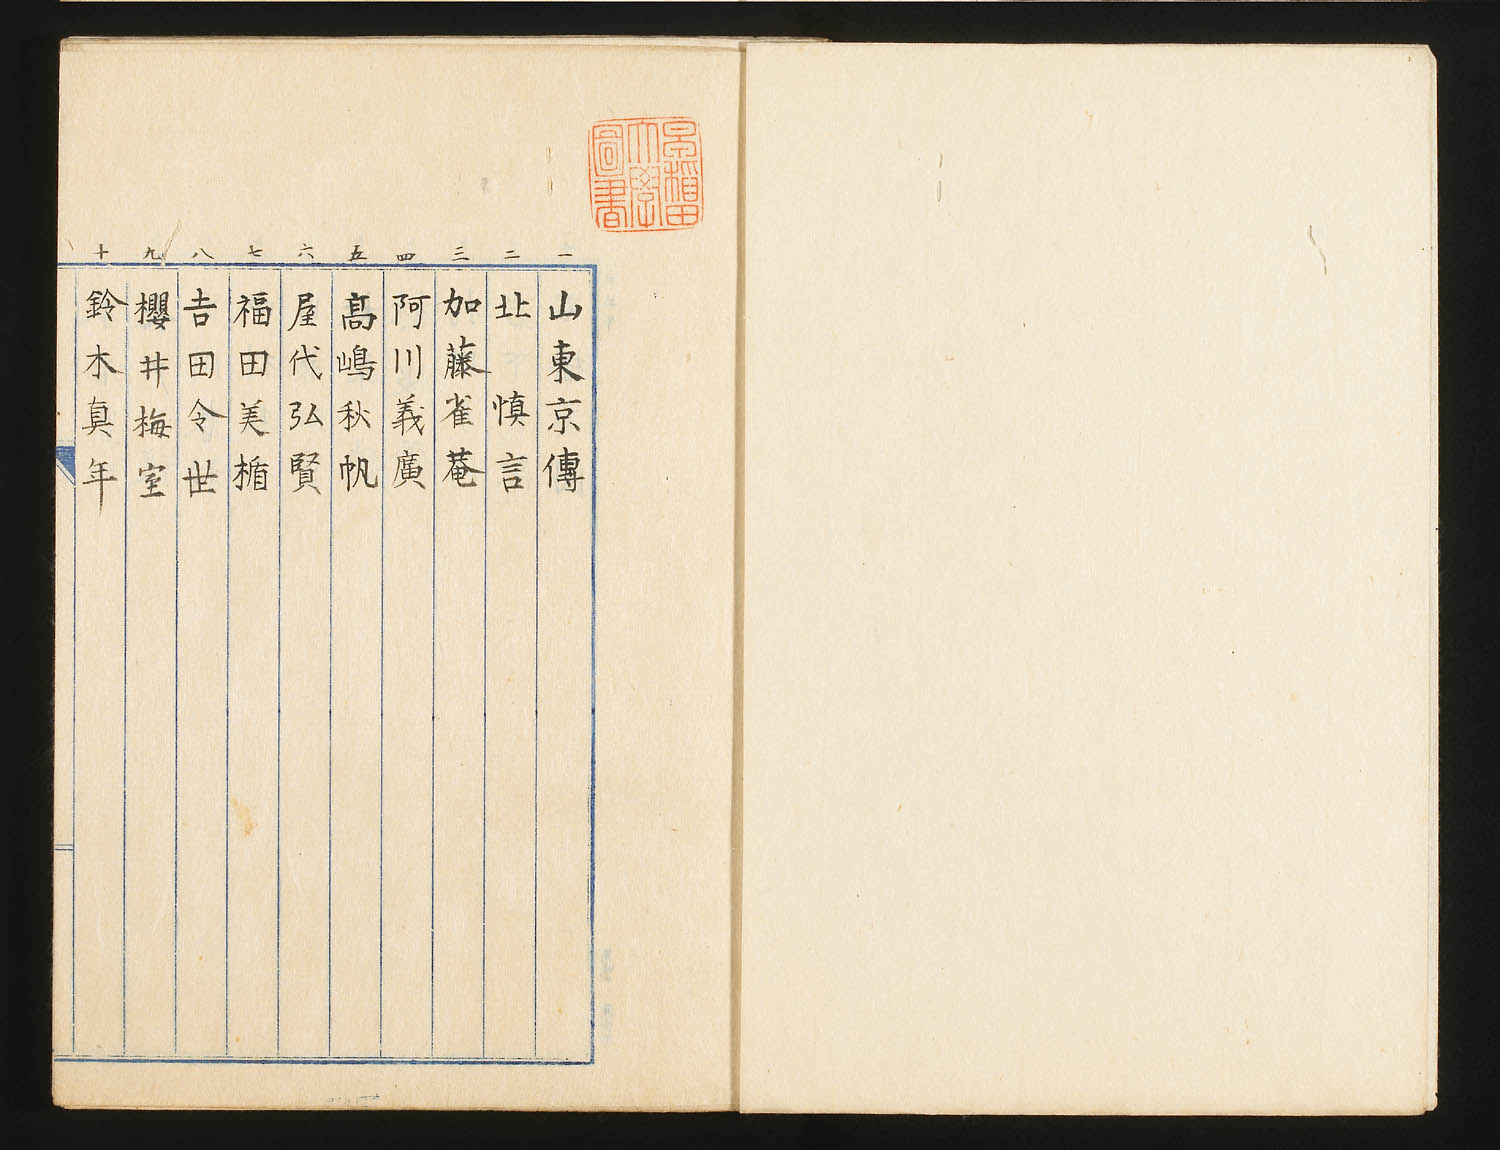 早稲田
大學
圖書
一
山東京傳
二
北慎言
三
加藤雀菴
四
阿川義廣
五
髙嶋秋帆
六
屋代弘賢
七
福田美楯
八
吉田令世
九
櫻井梅室
十
鈴木真年